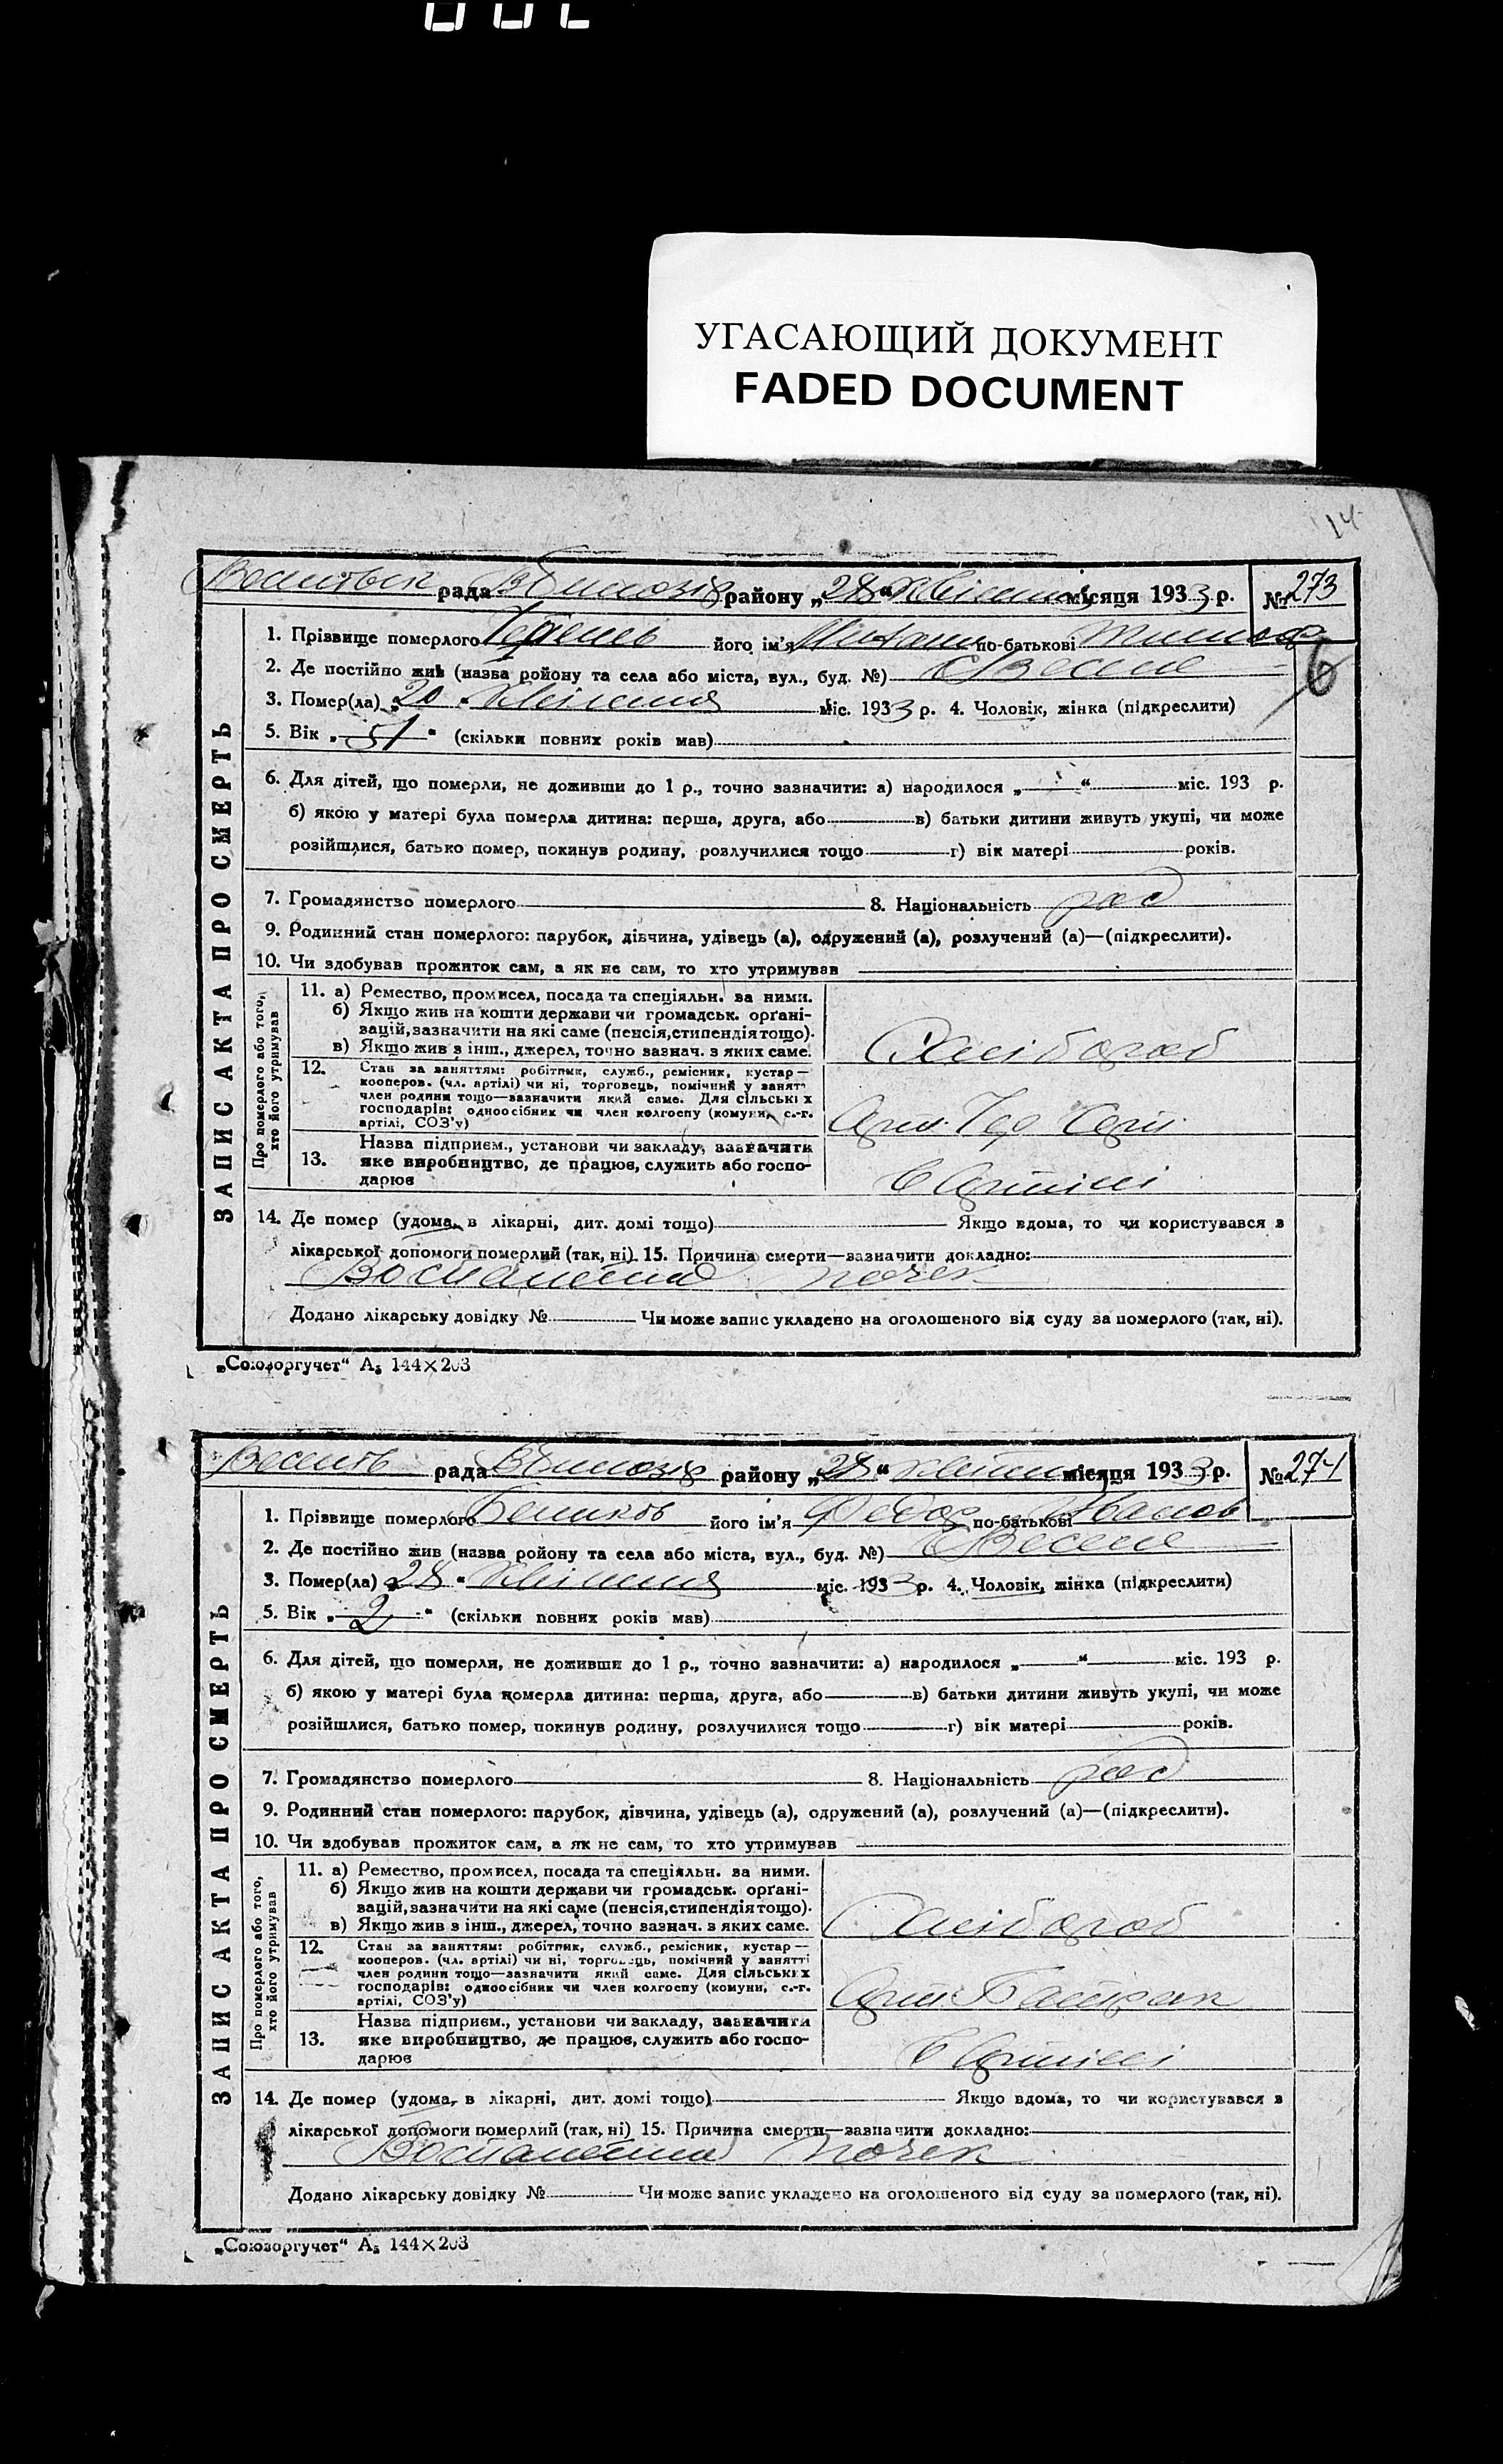 УГАСАЮЩИЙ ДОКУМЕНТ
FADED DOCUMENT
14
рада району „28“ місяця 1933 р. № 273
1. Прізвище померлого його ім'я по-батькові
6
2. Де постійно жив (назва ройону та села або міста, вул., буд. №) с Веселе
3. Помер(ла) „20“ квітня міс. 1933 р. 4. Чоловік, жінка (підкреслити)
5. Вік „51“ (скільки повних років мав)
6. Для дітей, що померли, не доживши до 1 р., точно зазначити: а) народилося „ “ міс. 193 р.
б) якою у матері була померла дитина: перша, друга, або в) батьки дитини живуть укупі, чи може
розійшлися, батько помер, покинув родину, розлучилися тощо г) вік матері років.
7. Громадянство померлого 8. Національність рос
9. Родинний стан померлого: парубок, дівчина, удівець (а), одружений (а), розлучений (а)—(підкреслити).
10. Чи здобував прожиток сам, а як не сам, то хто утримував
ЗАПИС АКТА ПРО СМЕРТЬ
Про померлого або того, хто його утримував
11. а) Ремество, промисел, посада та спеціяльн. за ними.
б) Якщо жив на кошти держави чи громадськ. орґані-
зацій, зазначити на які саме (пенсія, стипендія тощо).
в) Якщо жив з інш., джерел, точно зазнач. з яких саме.
Хлібороб
12. Стан за заняттям: робітник, служб., ремісник, кустар—
кооперов. (чл. артілі) чи ні, торговець, помічний у занятті
член родини тощо—зазначити який саме. Для сільських
господарів: одноосібник чи член колгоспу (комуни, с.-г.
артілі, СОЗ'у)
13. Назва підприєм., установи чи закладу, зазначити
яке виробництво, де працює, служить або госпо-
дарює
в Артілі
14. Де помер (удома, в лікарні, дит. домі тощо) Якщо вдома, то чи користувався з
лікарської допомоги померлий (так, ні). 15. Причина смерти—зазначити докладно:
Воспаление почек
Додано лікарську довідку № Чи може запис укладено на оголошеного від суду за померлого (так, ні).
„Союзоргучет“ А₅ 144×203
рада району „28“ місяця 1933 р. № 274
1. Прізвище померлого Беликов його ім'я Федор по-батькові Иванов
2. Де постійно жив (назва ройону та села або міста, вул., буд. №) с Веселе
3. Помер(ла) „28“ квітня міс. 1933 р. 4. Чоловік, жінка (підкреслити)
5. Вік „2“ (скільки повних років мав)
6. Для дітей, що померли, не доживши до 1 р., точно зазначити: а) народилося „ “ міс. 193 р.
б) якою у матері була померла дитина: перша, друга, або в) батьки дитини живуть укупі, чи може
розійшлися, батько помер, покинув родину, розлучилися тощо г) вік матері років.
7. Громадянство померлого 8. Національність рос
9. Родинний стан померлого: парубок, дівчина, удівець (а), одружений (а), розлучений (а)—(підкреслити).
10. Чи здобував прожиток сам, а як не сам, то хто утримував
ЗАПИС АКТА ПРО СМЕРТЬ
Про померлого або того, хто його утримував
11. а) Ремество, промисел, посада та спеціяльн. за ними.
б) Якщо жив на кошти держави чи громадськ. орґані-
зацій, зазначити на які саме (пенсія, стипендія тощо).
в) Якщо жив з інш., джерел, точно зазнач. з яких саме.
Хлібороб
12. Стан за заняттям: робітник, служб., ремісник, кустар—
кооперов. (чл. артілі) чи ні, торговець, помічний у занятті
член родини тощо—зазначити який саме. Для сільських
господарів: одноосібник чи член колгоспу (комуни, с.-г.
артілі, СОЗ'у)
13. Назва підприєм., установи чи закладу, зазначити
яке виробництво, де працює, служить або госпо-
дарює
в Артілі
14. Де помер (удома, в лікарні, дит. домі тощо) Якщо вдома, то чи користувався з
лікарської допомоги померлий (так, ні) 15. Причина смерти—зазначити докладно:
Воспаление почек
Додано лікарську довідку № Чи може запис укладено на оголошеного від суду за померлого (так, ні).
„Союзоргучет“ А₅ 144×203